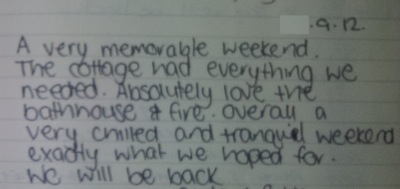 .9.12.
A very memorable weekend.
The cottage had everything we
needed. Absolutely love the
bathhouse & fire. Overall a
very chilled and tranquil weekend
exactly what we hoped for.
We will be back